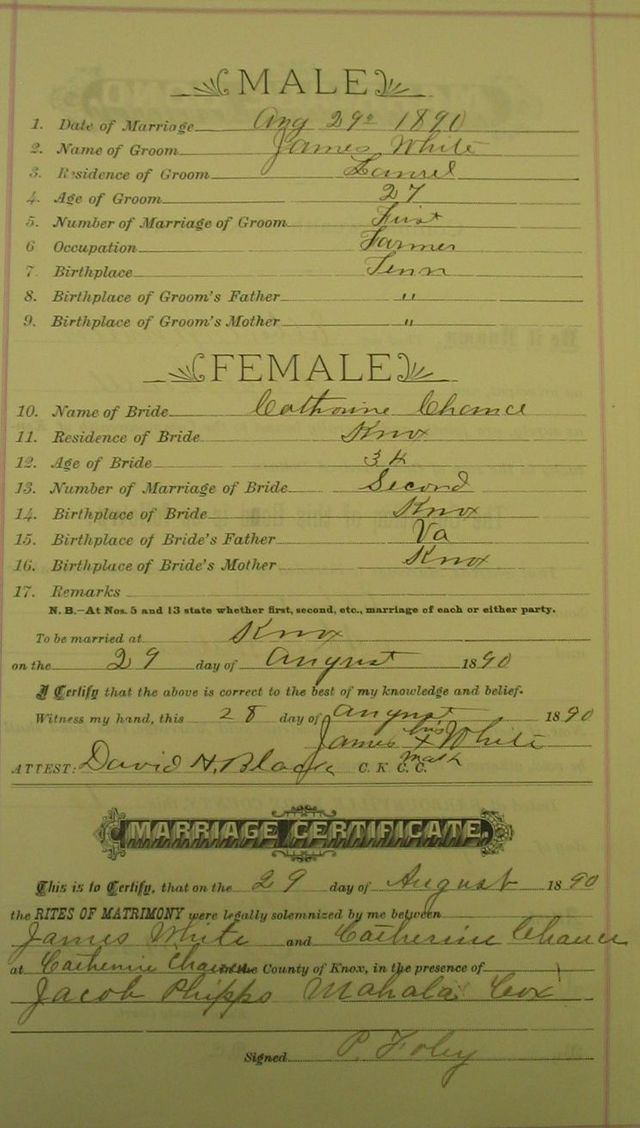 MALE
1. Date of Marriage Aug 29th 1890
2. Name of Groom James White
3. Residence of Groom Laurel
4. Age of Groom 27
5. Number of Marriage of Groom First
6 Occupation Farmer
7. Birthplace Tenn
8. Birthplace of Groom's Father "
9. Birthplace of Groom's Mother "
FEMALE
10. Name of Bride Cathorine Chance
11. Residence of Bride Knox
12. Age of Bride 34
13. Number of Marriage of Bride Second
14. Birthplace of Bride Knox
15. Birthplace of Bride's Father Va
16. Birthplace of Bride's Mother Knox
17. Remarks
N. B.—At Nos. 5 and 13 state whether first, second, etc., marriage of each or either party.
To be married at Knox
on the 29 day of August 1890
I Certify that the above is correct to the best of my knowledge and belief.
Witness my hand, this 28 day of August 1890
James his x mark White
ATTEST: David H. Black C. K. C. C.
MARRIAGE CERTIFICATE.
This is to Certify, that on the 29 day of August 1890
the RITES OF MATRIMONY were legally solemnized by me between
James White and Catherine Chance
at Catherine Chance the County of Knox, in the presence of
Jacob Phipps Mahala Cox
Signed P. Foley